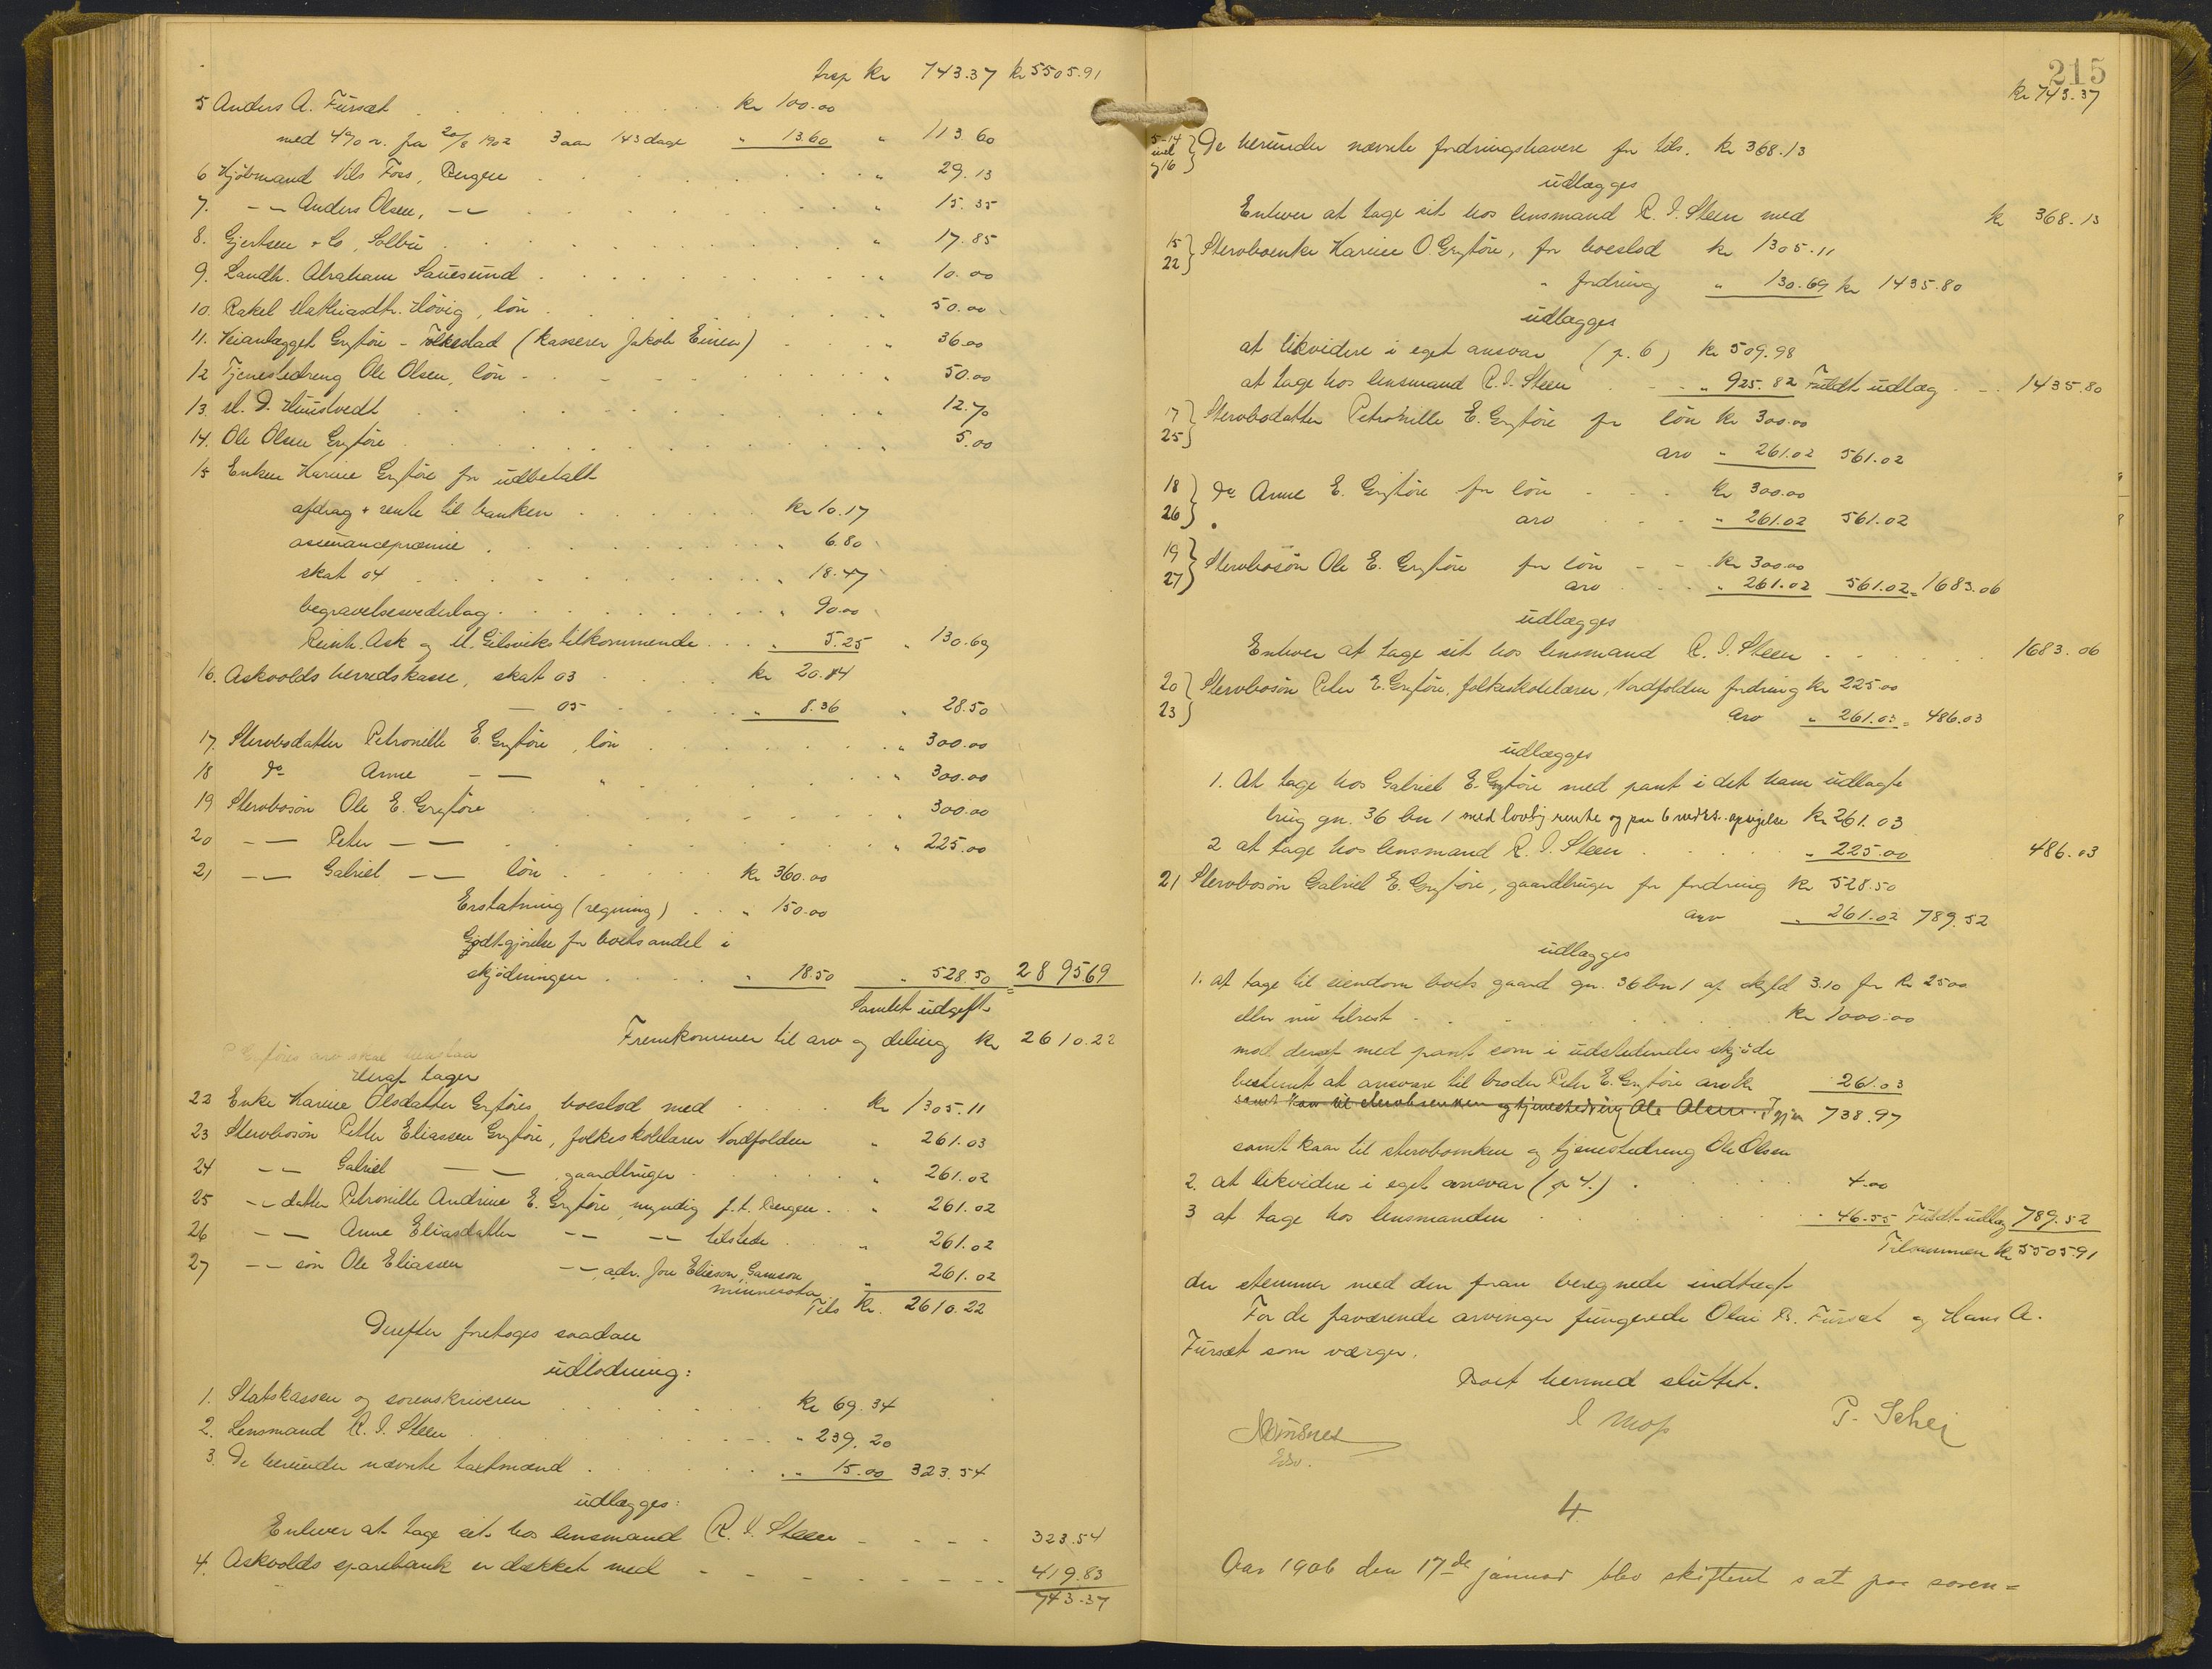 trsp kr 743.37 kr 5505.91
5 Anders A. Fürsæt . . . kr 100.00
med 4% r. fra 20/8 1902 3 aar 143 dage " 13.60 " 113 60
6 Kjöbmand Nils Foss, Bergen . . . " 29.13
7. -- Anders Olsen, -- . . . " 15.35
8. Gjertsen & Co, Solbü . . . " 17.85
9. Landh. Abraham Sauesund . . . " 10.00
10. Rakel Mathiasdtr. Hövig, lön . . . " 50.00
11. Veianlægget Grytöre - Folkestad (kasserer Jakob Einen) . . . " 36.00
12 Tjenestedreng Ole Olsen, lön . . . " 50.00
13. M. D. Hünstvedt . . . " 12.70
14. Ole Olsen Grytöre . . . " 5.00
15 Enken Karine Grytöre for udbetalt
afdrag + rente til banken . . . kr 10.17
assurancepræmie . . . " 6.80
skat 04 . . . " 18.47
begravelsesvederlag . . . " 90.00
Reinh. Ask og M. Gilsviks tilkommende . . . " 5.25 " 130.69
16. Askvolds herredskasse, skat 03 . . . kr 20.14
— 05 . . . " 8.36 " 28.50
17. Stervbodatter Petronille E. Grytöre, lön . . . " 300.00
18 do Anne — — " . . . " 300.00
19 Stervbosön Ole E. Grytöre . . . " 300.00
20 -- Peter -- . . . " 225.00
21 -- Gabriel -- lön . . . kr 360.00
Erstatning (regning) . . . " 150.00
Godtgjörelse for boets andel i
skjödningen . . . " 18.50 " 528.50 = 2895.69
Samlet udgift
Fremkommer til arv og deling kr 2610.22
Grytöres arv skal
Heraf tager
22 Enke Karine Olsdatter Grytöres boeslod med . . . kr 1305.11
23 Stervbosön Peter Eliassen Grytöre, folkeskolelærer Nordfolden " 261.03
24 -- Gabriel — — gaardbruger . . . " 261.02
25 -- datter Petronille Andrine E. Grytöre, myndig f.t. Bergen . . " 261.02
26 -- Anne Eliasdatter -- -- tilstede . . . " 261.02
27 -- sön Ole Eliassen -- adr. Jon Elieson, Samson " 261.02
Minnesota
Tils Kr. 2610.22
Derefter foretoges saadan
üdlodning:
1. Statskassen og sorenskriveren . . . kr 69.34
2. Lensmand R. I. Steen . . . " 239.20
3. De herunder nævnte takstmænd . . . " 15.00 323.54
udlægges:
Enhver at tage sit hos lensmand R. I. Steen - - - - 323.54
4. Askvolds sparebank er dækket med - - - - 419.83
743.37
215
kr 743.37
5-14 incl og 16 } De herunder nævnte fordringshavere for tils. kr 368.13
udlægges
Enhver at tage sit hos lensmand R. I. Steen med kr 368.13
15 22 } Stervboenke Karine O. Grytöre, for boeslod kr 1305.11
" fordring " 130.69 kr 1435.80
udlægges
at likvidere i eget ansvar (p. 6) kr 509.98
at tage hos lensmand R. I. Steen . . . " 925.82 Fuldt udlæg . . 1435.80
17 25 } Stervbodatter Petronille E. Grytöre for lön kr 300.00
arv " 261.02 561.02
18 26 } do Anne E. Grytöre for lön - - - kr 300.00
arv . . . " 261.02 561.02
19 27 } Stervbosön Ole E. Grytöre for lön - - kr 300.00
arv . . . " 261.02 561.02 = 1683.06
udlægges
Enhver at tage sit hos lensmand R. I. Steen . . . 1683.06
20 23 } Stervbosön Peter E. Grytöre, folkeskolelærer, Nordfolden fordring kr 225.00
arv " 261.03 = 486.03
udlægges
1. At tage hos Gabriel E. Grytöre med pant i det ham udlagte
brug gn. 36 bn 1 med lovlig rente og paa 6 mdrs. opsigelse kr 261.03
2 at tage hos lensmand R. I. Steen . . . " 225.00 486.03
21 Stervbosön Gabriel E. Grytöre, gaardbruger for fordring kr 528.50
arv " 261.02 789.52
udlægges
1. at tage til eiendom boets gaard gn. 36 bn 1 af skyld 3.10 for kr 2500
eller nu tilrest . . . kr 1000.00
mod deraf med pant som i udstedendes skjöde
bestemt at ansvare til broder Peter E. Grytöre arv kr 261.03
samt kaar til stervboenken og tjenestedreng Ole Olsen. Igjen 738.97
samt kaar til stervboenken og tjenestedreng Ole Olsen
2. at likvidere i eget ansvar (p 4.) . . . 4.00
3 at tage hos lensmanden . . . 46.55 Fuldt udlæg 789.52
Tilsammen kr 5505.91
der stemmer med den foran beregnede indtægt
For de fraværende arvinger fungerede Olai B. Fürsæt og Hans A.
Fürsæt som værger.
Boet hermed sluttet.
I Moss P. Schei
4
Aar 1906 den 17de januar blev skifteret sat paa soren=